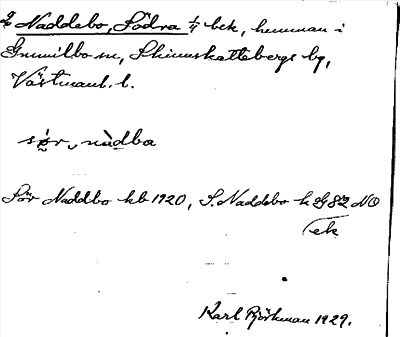 2 Naddebo, Södra 1/4 bek, hemman i
Gunnilbo sn, Skinnskattebergs bg,
Västmanl. l.
sø̀r, nàdba
Sör Naddbo kb 1920, S. Naddebo k G 82 NO
ek
Karl Björkman 1929.